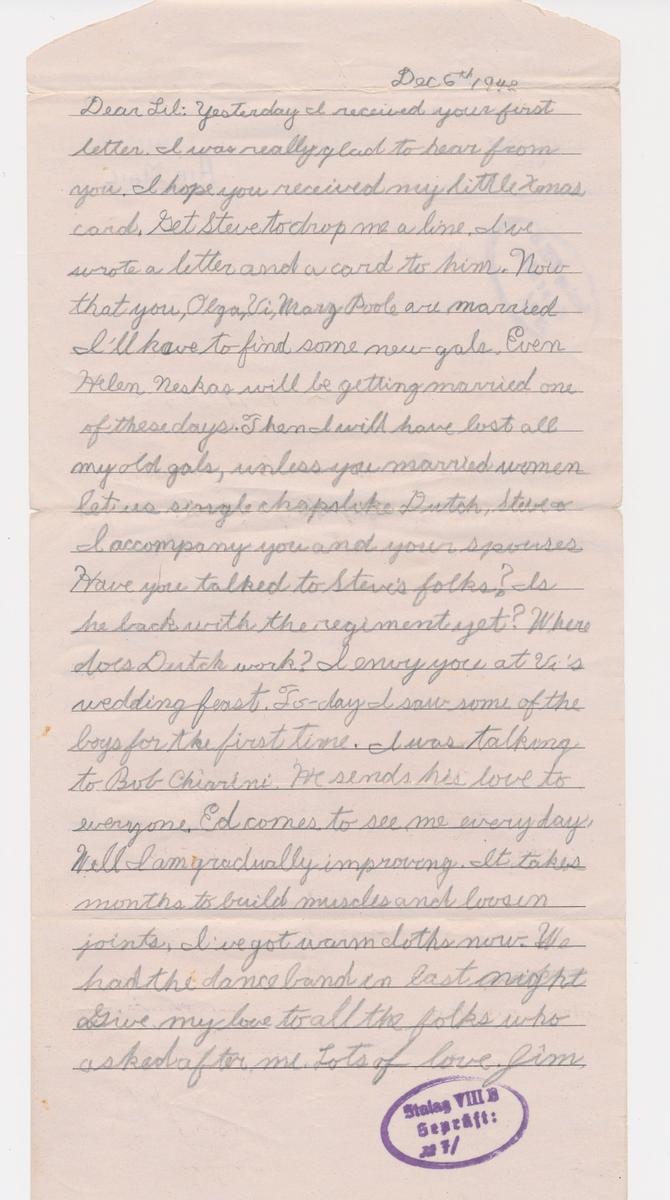 Dec 6th 1942
Dear Lil: Yesterday I received your first
letter. I was really glad to hear from
you. I hope you received my little Xmas
card. Get Steve to drop me a line. I've
wrote a letter and a card to him. Now
that you, Olga, Vi, Mary Poole are married
I'll have to find some new gals. Even
Helen Neskas will be getting married one
of these days. Then I will have lost all
my old gals, unless you married women
let us single chaps like Dutch, Steve &
I accompany you and your spouses
Have you talked to Steve's folks? Is
he back with the regiment yet? Where
does Dutch work? I envy you at Vi's
wedding feast. To-day I saw some of the
boys for the first time. I was talking
to Bob Chiarini. He sends his love to
everyone. Ed comes to see me everyday.
Well I am gradually improving. It takes
months to build muscles and loosen
joints. I've got warm cloths now. We
had the dance band in last night
Give my love to all the folks who
asked after me. Lots of love. Jim
Stalag VIII B
Geprüft: